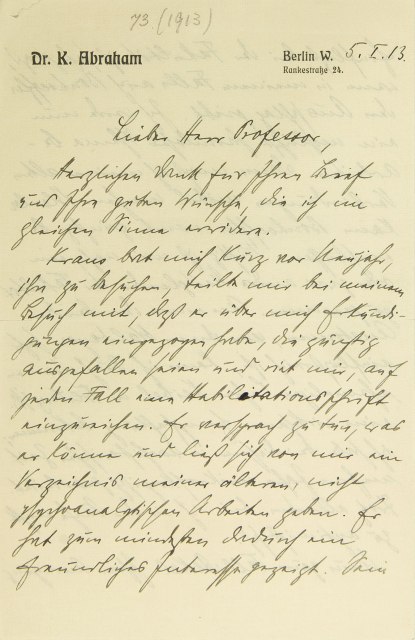 73 (1913)
Dr. K. Abraham
Berlin W. 5. I. 13.
Rankestraße 24.
Lieber Herr Professor,
Herzlichen Dank für Ihren Brief
und Ihre guten Wünsche, die ich im
gleichen Sinne erwidere.
Kraus bat mich kurz vor Neujahr,
ihn zu besuchen, teilte mir bei meinem
Besuch mit, daß er über mich Erkundi-
gungen eingezogen habe, die günstig
ausgefallen seien und riet mir, auf
jeden Fall eine Habilitationsschrift
einzureichen. Er versprach zu tun, was
er könne und ließ sich von mir ein
Verzeichnis meiner älteren, nicht
psychoanalytischen Arbeiten geben. Er
hat zum mindesten dadurch ein
freundliches Interesse gezeigt. Sein